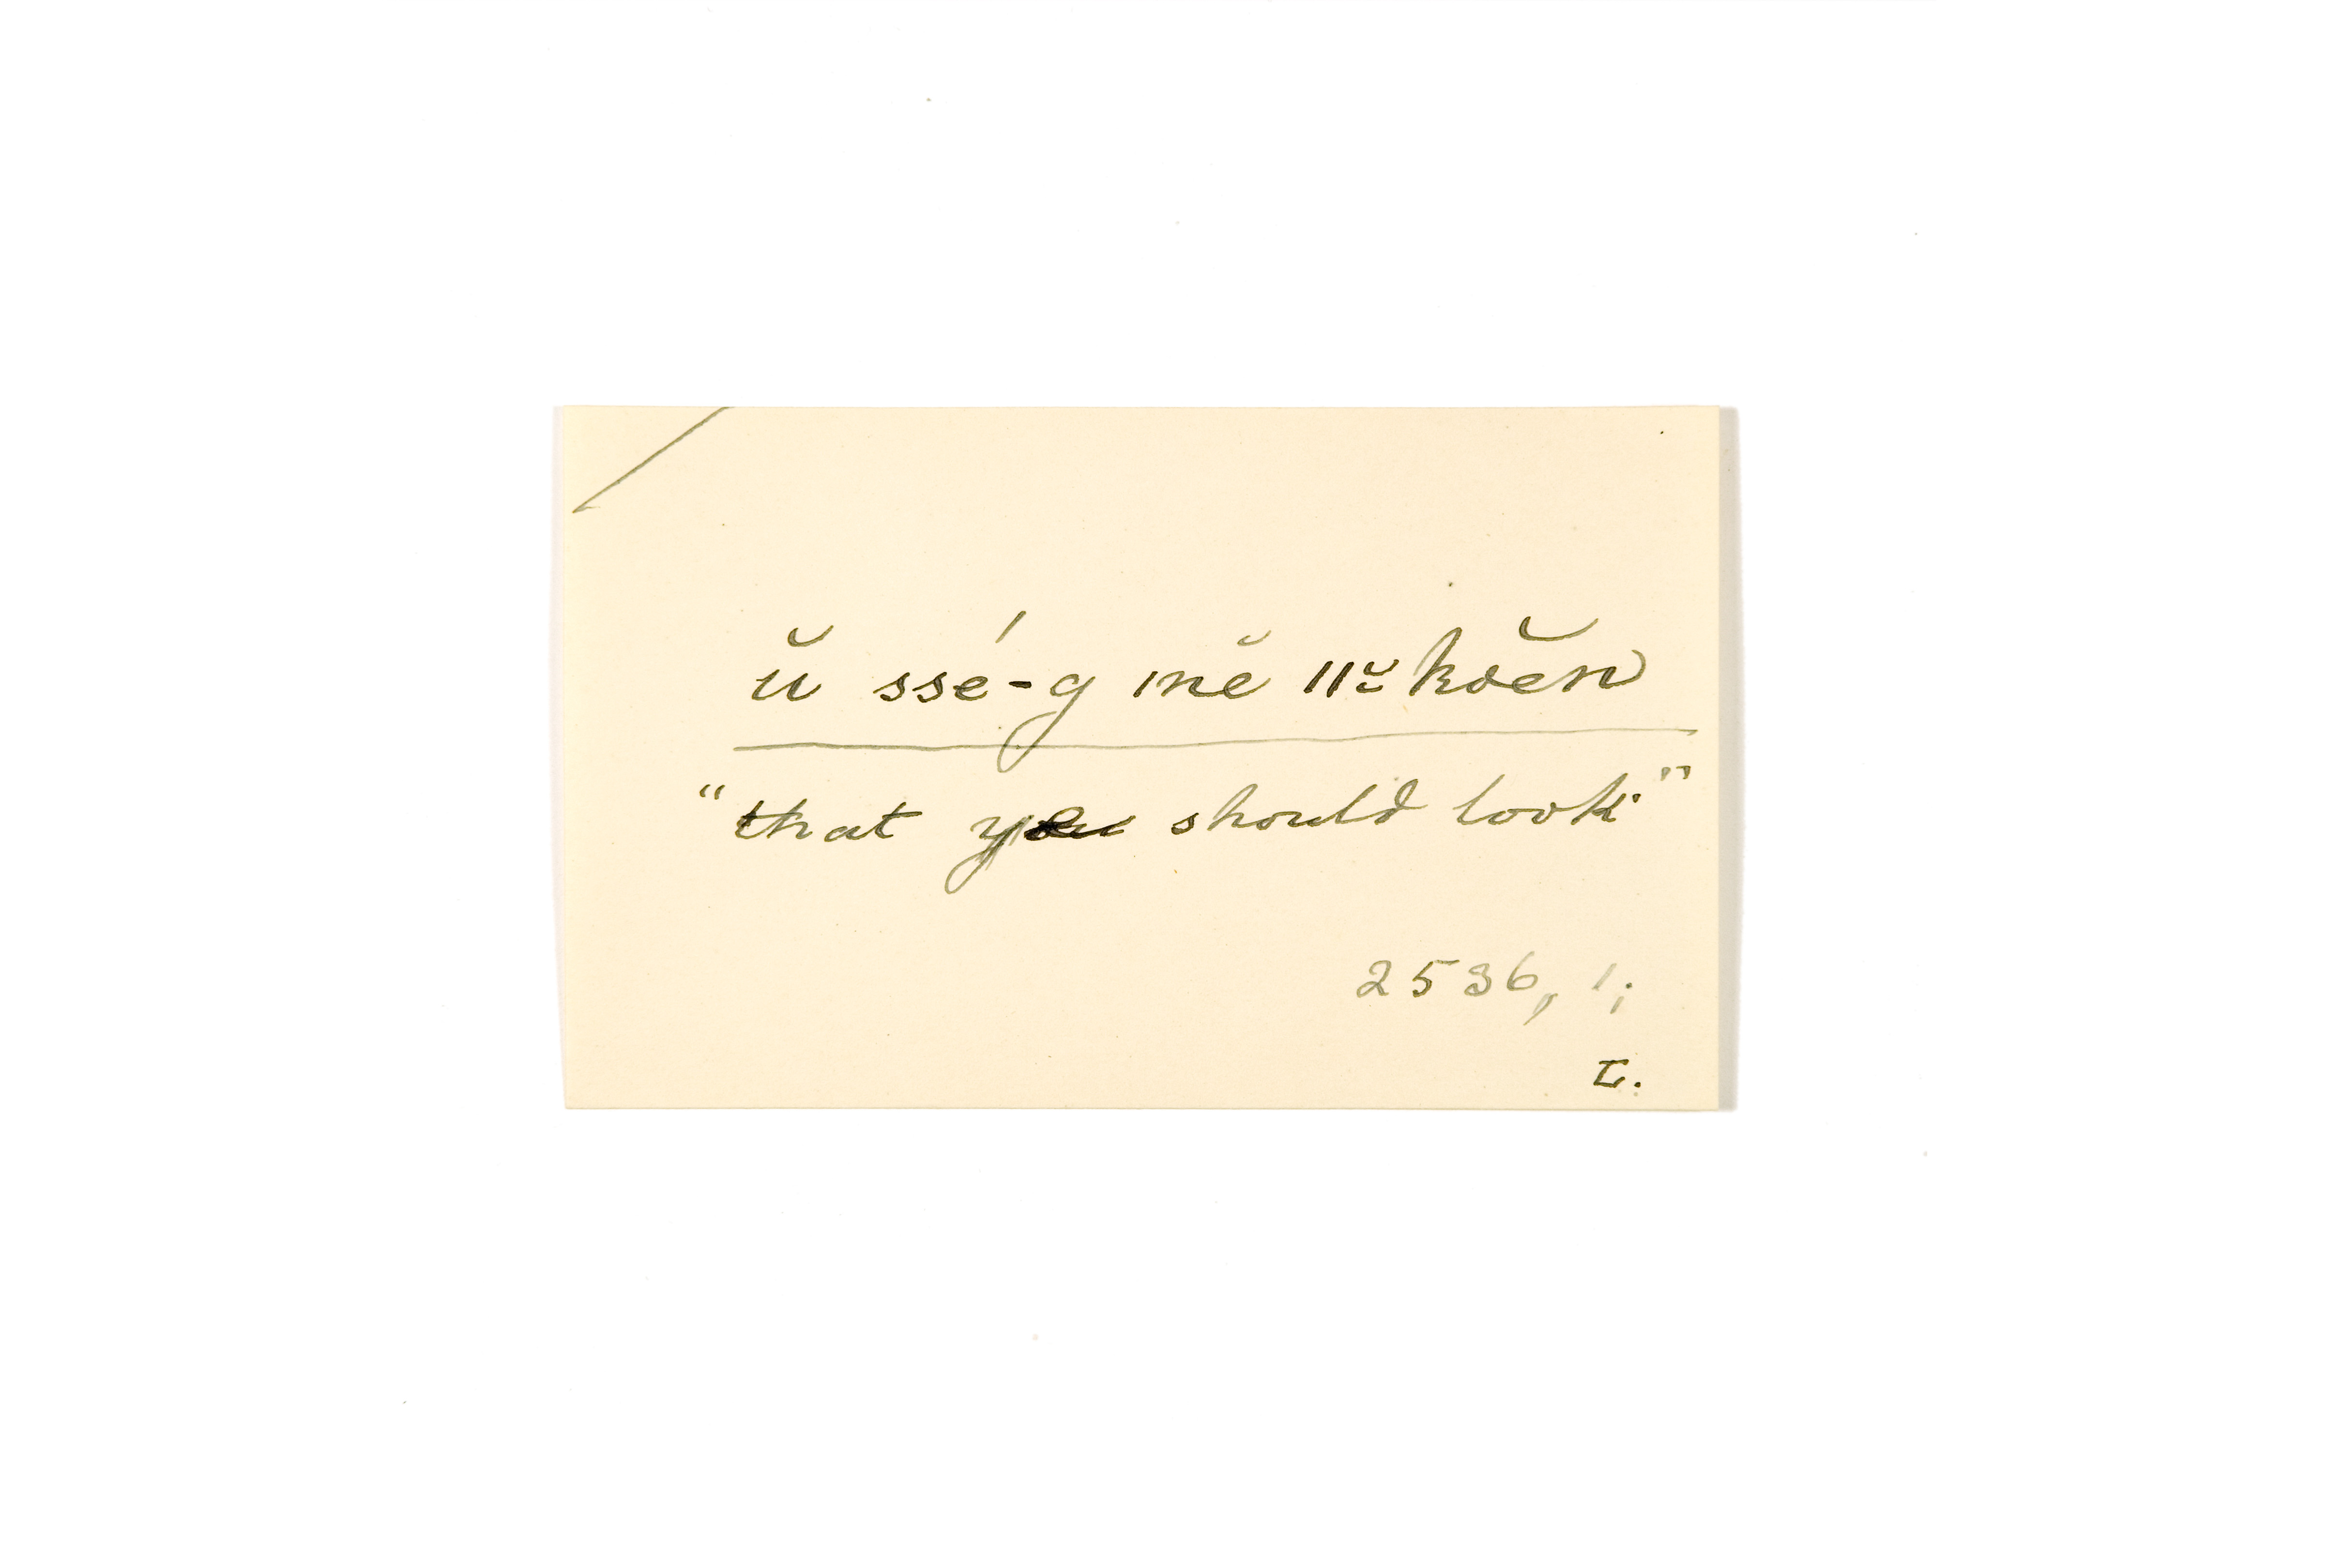 ŭ ssé-g ınĕ ǁ≍kŏĕn
"that you should look"
2536, 1;
L.